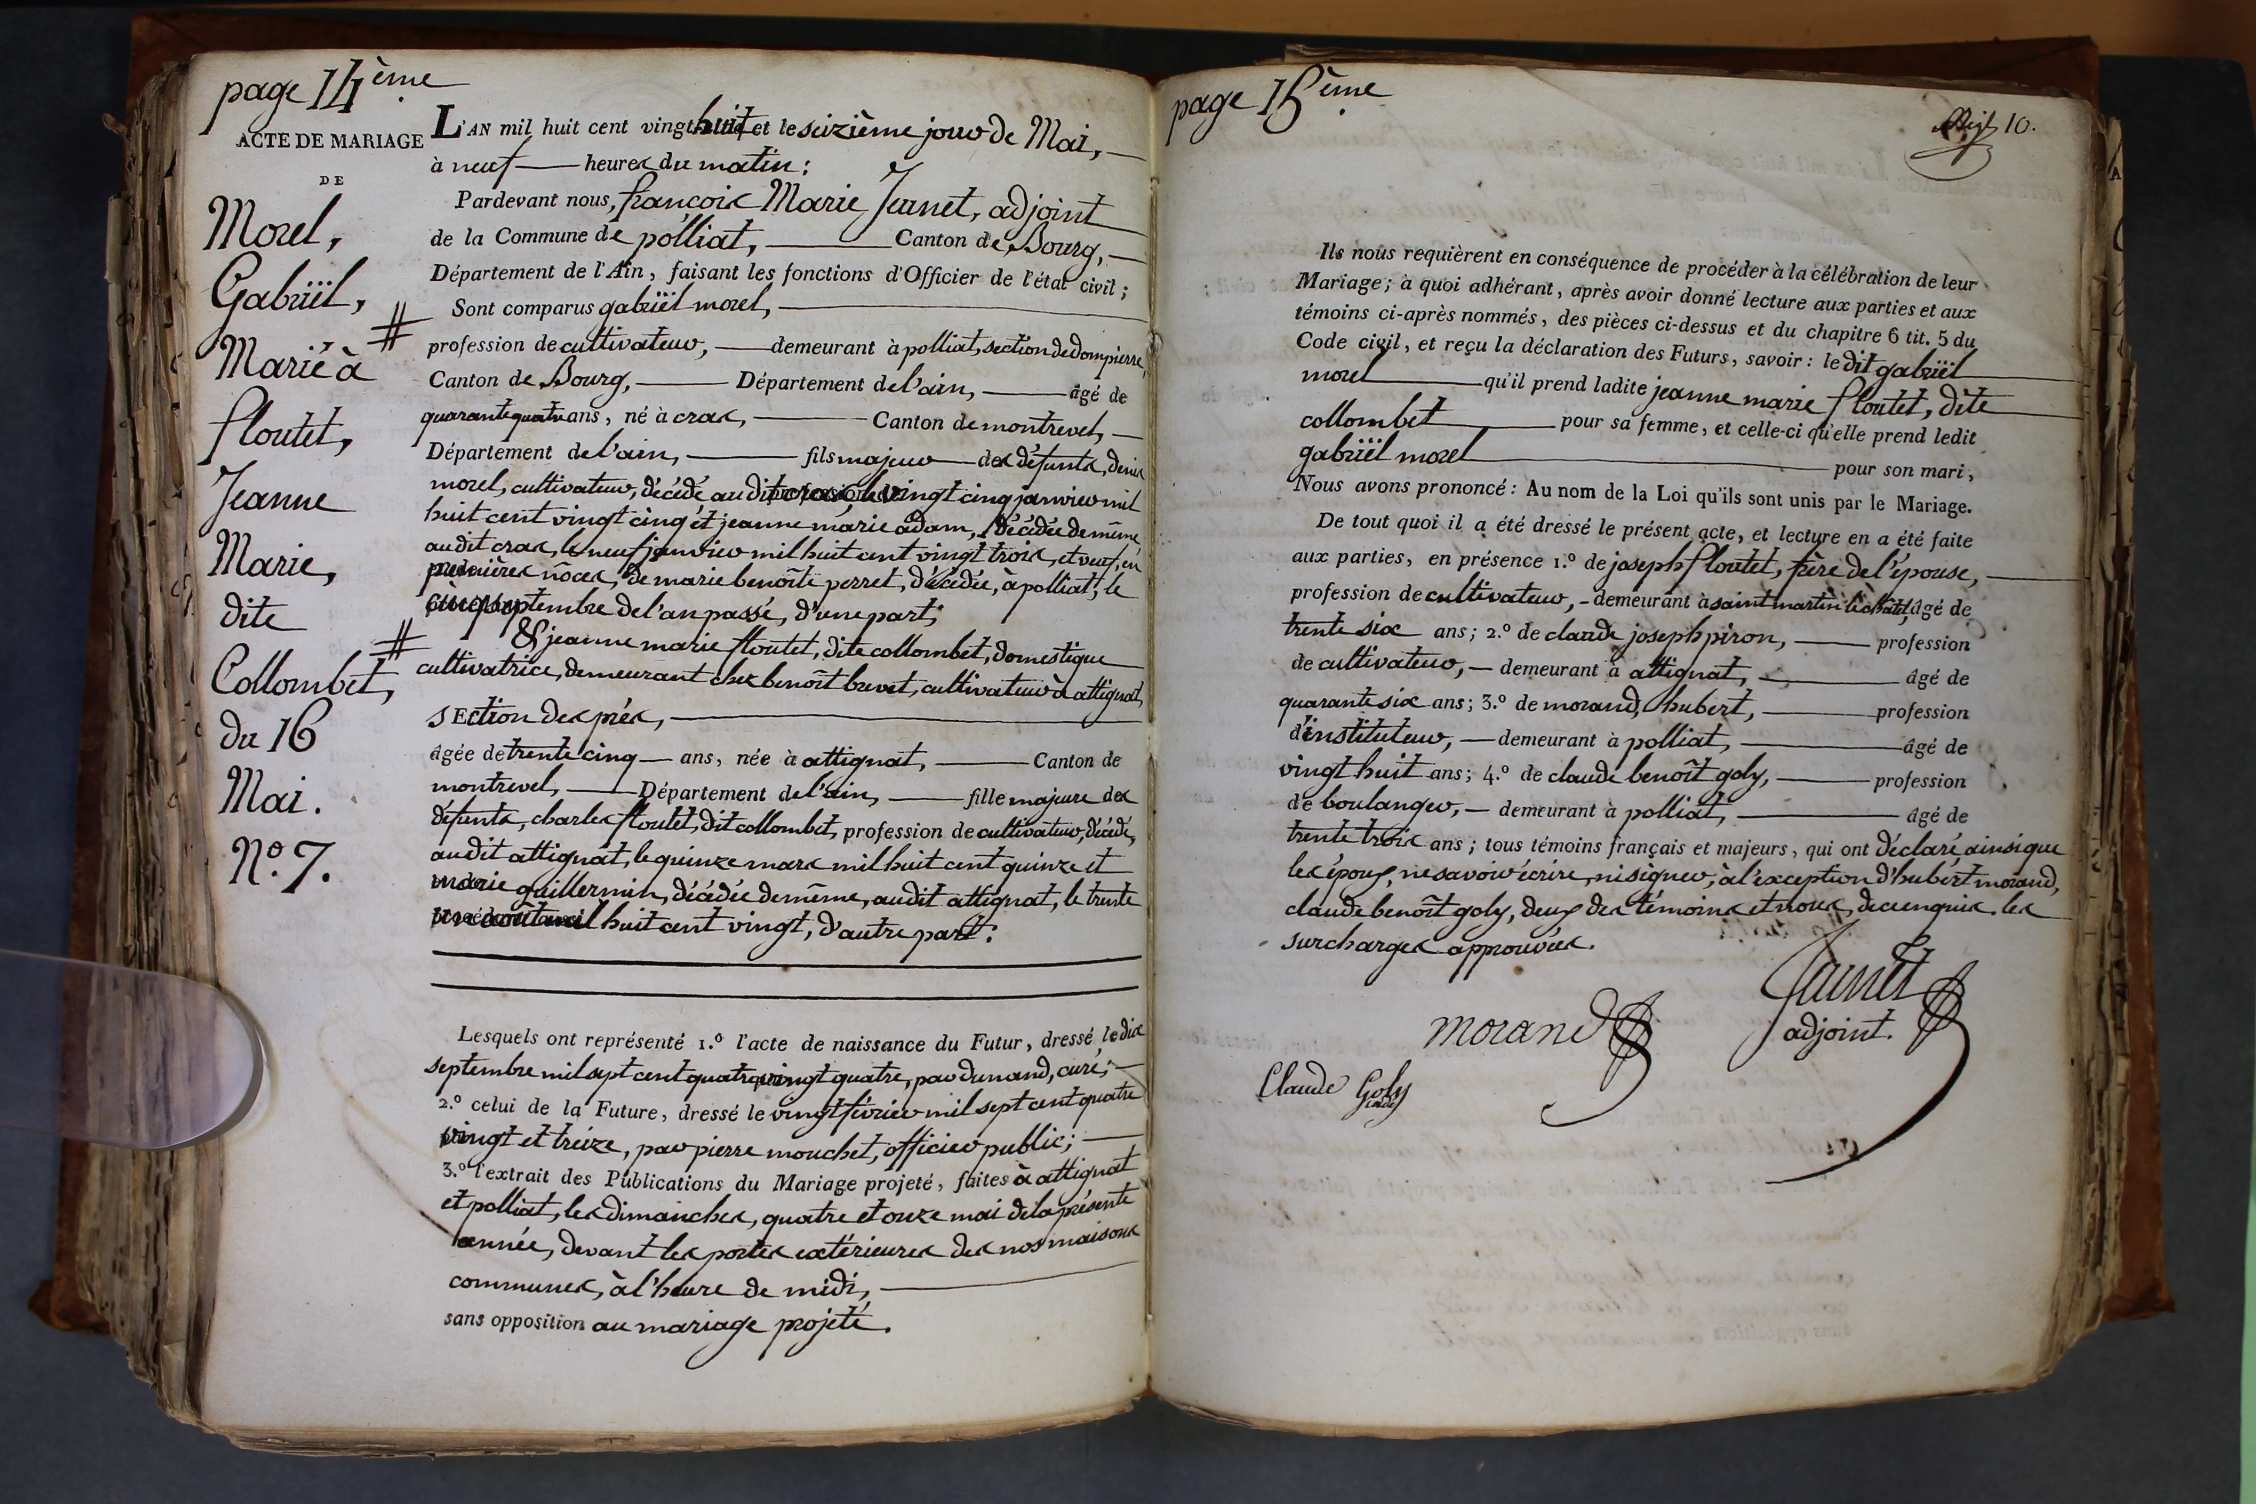 page 14ème
ACTE DE MARIAGE
DE
Morel,
Gabriël,
Marié à
floutet,
Jeanne
Marie,
dite
Collombet,
du 16
Mai.
N.o 7.
L'AN mil huit cent vingt huit et le seizième jour de Mai,
à neuf heures du matin;
Pardevant nous, françois Marie Jeunet, adjoint
de la Commune de polliat, Canton de Bourg,
Département de l'Ain, faisant les fonctions d'Officier de l'état civil;
Sont comparus gabriël morel,
# profession de cultivateur, demeurant à polliat, section de dompierre,
Canton de Bourg, Département de l'ain, âgé de
quarante quatre ans, né à cras, Canton de montrevel,
Département de l'ain, fils majeur des défunts, denis
morel, cultivateur, décédé audit cras, le vingt cinq janvier mil
huit cent vingt cinq et jeanne marie adam, décédée de même,
audit cras, le neuf janvier mil huit cent vingt trois, et veuf, en
premières nôces, de marie benoîte perret, décédée, à polliat, le
cinq septembre de l'an passé, d'une part;
# & jeanne marie floutet, dite collombet, domestique
cultivatrice, demeurant chez benoît brevet, cultivateur à attignat,
sEction des prés,
âgée de trente cinq ans, née à attignat, Canton de
montrevel, Département de l'ain, fille majeure des
défunts, charles floutet, dit collombet, profession de cultivateur, décédé,
audit attignat, le quinze mars mil huit cent quinze et
marie guillermin, décédée de même, audit attignat, le trente
un août mil huit cent vingt, d'autre part:
Lesquels ont représenté 1.o l'acte de naissance du Futur, dressé le dix
septembre mil sept cent quatre vingt quatre, par dunand, curé;
2.o celui de la Future, dressé le vingt février mil sept cent quatre
vingt et treize, par pierre mouchet, officier public;
3.o l'extrait des Publications du Mariage projeté, faites à attignat
et polliat, les dimanches, quatre et onze mai de la présente
année, devant les portes extérieures des nos maisons
communes, à l'heure de midi,
sans opposition au mariage projeté.
page 15ème
10.
Ils nous requièrent en conséquence de procéder à la célébration de leur
Mariage; à quoi adhérant, après avoir donné lecture aux parties et aux
témoins ci-après nommés, des pièces ci-dessus et du chapitre 6 tit. 5 du
Code civil, et reçu la déclaration des Futurs, savoir: le dit gabriël
morel qu'il prend ladite jeanne marie floutet, dite
collombet pour sa femme, et celle-ci qu'elle prend ledit
gabriël morel pour son mari,
Nous avons prononcé: Au nom de la Loi qu'ils sont unis par le Mariage.
De tout quoi il a été dressé le présent acte, et lecture en a été faite
aux parties, en présence 1.o de joseph floutet, frère de l'épouse,
profession de cultivateur, demeurant à saint martin le châtel, âgé de
trente six ans; 2.o de claude joseph piron, profession
de cultivateur, demeurant à attignat, âgé de
quarante six ans; 3.o de morand, hubert, profession
d'instituteur, demeurant à polliat, âgé de
vingt huit ans; 4.o de claude benoît goly, profession
de boulanger, demeurant à polliat, âgé de
trente trois ans; tous témoins français et majeurs, qui ont déclaré ainsi que
les époux, ne savoir écrire, ni signer, à l'exception d'hubert morand,
claude benoît goly, deux des témoins et nous, de ce enquis. les
surcharges approuvées.
Jeunet
adjoint.
morand
Claude Goly